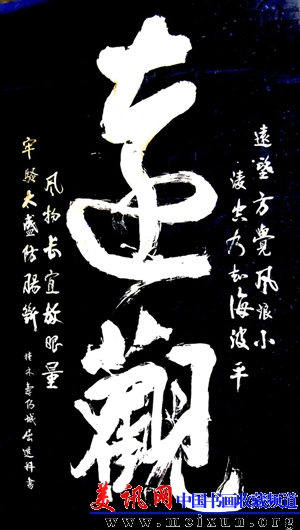 遠望方覺风浪小
凌空乃知海波平
遠觀
风物长宜放眼量
牢騷太盛防腸斷
美讯网 中国书画收藏频道
www.meixun.org